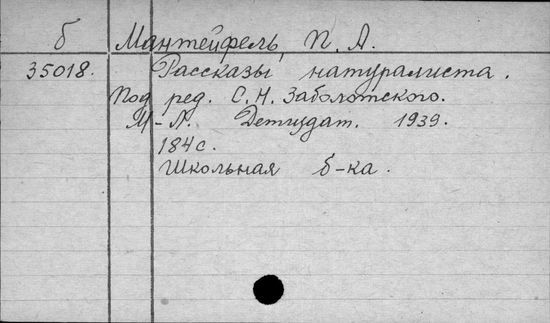 б Мантейфель, П. А.
35018. Рассказы натуралиста.
Под ред. С. Н. Заболотского.
М-Л. Детиздат. 1939.
184 с.
Школьная б-ка.